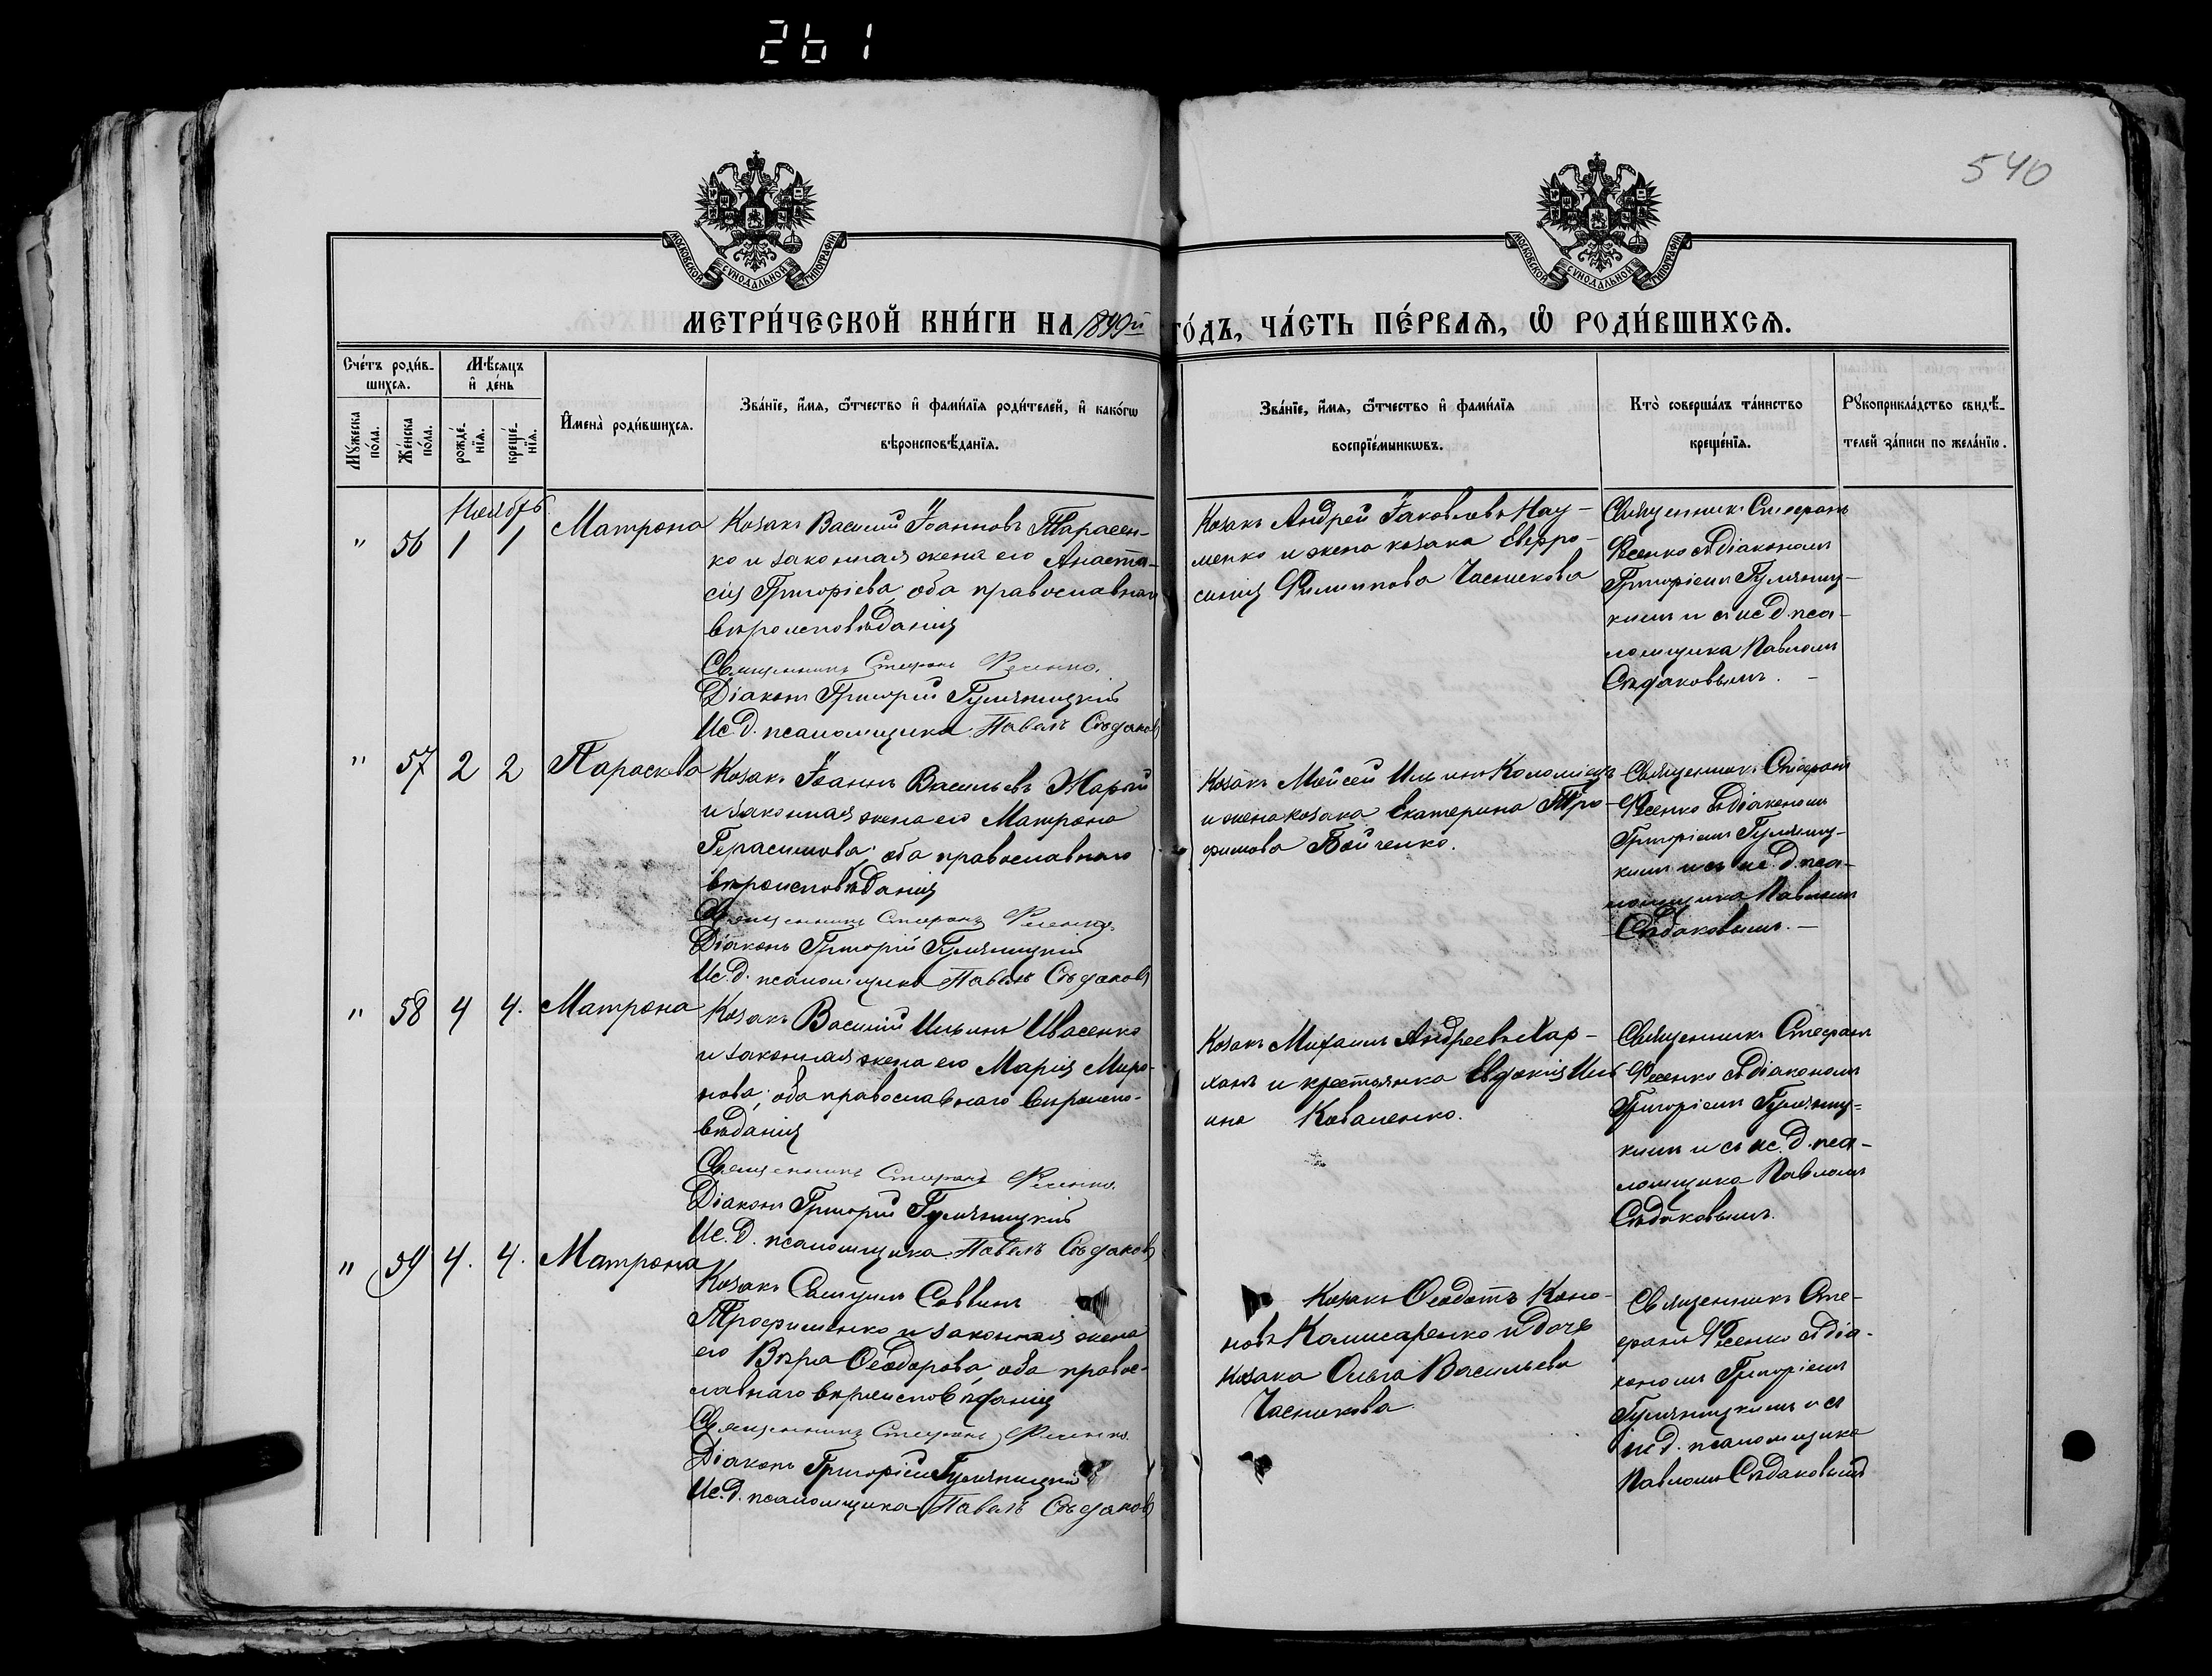 261
540
МОСКОВСКОЙ СѴНОДАЛЬНОЙ ТИПОГРАФІИ
МОСКОВСКОЙ СѴНОДАЛЬНОЙ ТИПОГРАФІИ
МЕТРИ́ЧЕСКОЙ КНИ́ГИ НА 1899й ГО́ДЪ, ЧА́СТЬ ПЕ́РВАЯ, Ѽ РОДИ́ВШИХСЯ.
Сче́тъ роди́в-
шихся.
Мѣ́сяцъ
и҆ де́нь
Мꙋ́жеска
по́ла.
Же́нска
по́ла.
рожде́-
нїя.
креще́-
нїя.
И҆мена̀ роди́вшихся.
Зва́нїе, и҆́мя, ѻ҆́тчество и҆ фами́лїя роди́телей, и҆ како́гѡ
вѣроисповѣ́данїя.
Зва́нїе, и҆́мя, ѻ҆́тчество и҆ фами́лїя
воспрїе́мникѡвъ.
Кто̀ соверша́лъ та́инство
креще́нїя.
Рꙋкоприкла́дство свидѣ́-
телей за́писи по жела́нїю.
Ноябрь
" 56 1 1 Матрона
Козакъ Василій Іоанновъ Тарасен-
ко и законная жена его Анаста-
сія Григоріева, оба православнаго
вѣроисповѣданія
Священникъ Стефанъ Фесенко.
Діаконъ Григорій Гуляницкій
Ис. д. псаломщика Павелъ Сѣдаковъ
Козакъ Андрей Іаковлевъ Нау-
менко и жена козака Евфро-
синія Филипова Часникова
Священникъ Стефанъ
Фесенко съ діакономъ
Григоріемъ Гуляниц-
кимъ и съ ис. д. пса-
ломщика Павломъ
Сѣдаковымъ.
" 57 2 2 Параскева
Козакъ Іоаннъ Васильевъ Жарый
и законная жена его Матрона
Герасимова, оба православнаго
вѣроисповѣданія
Священникъ Стефанъ Фесенко.
Діаконъ Григорій Гуляницкій
Ис. д. псаломщика Павелъ Сѣдаковъ
Козакъ Моисей Ильинъ Коломіецъ
и жена козака Екатерина Тро-
фимова Бойченко.
Священникъ Стефанъ
Фесенко съ діакономъ
Григоріемъ Гуляниц-
кимъ и съ ис. д. пса-
ломщика Павломъ
Сѣдаковымъ.
" 58 4 4. Матрона
Козакъ Василій Ильинъ Ивасенко
и законная жена его Марія Миро-
нова, оба православнаго вѣроиспо-
вѣданія
Священникъ Стефанъ Фесенко.
Діаконъ Григорій Гуляницкій
Ис. д. псаломщика Павелъ Сѣдаковъ
Козакъ Михаилъ Андреевъ Хар-
ханъ и крестьянка Евдокія Иль-
ина Коваленко.
Священникъ Стефанъ
Фесенко съ діакономъ
Григоріемъ Гуляниц-
кимъ и съ ис. д. пса-
ломщика Павломъ
Сѣдаковымъ.
" 59 4. 4. Матрона
Козакъ Самуилъ Саввинъ
Трофименко и законная жена
его Вѣра Ѳеодорова, оба право-
славнаго вѣроисповѣданія
Священникъ Стефанъ Фесенко
Діаконъ Григорій Гуляницкій
Ис. д. псаломщика Павелъ Сѣдаковъ
Козакъ Ѳеодотъ Коно-
новъ Комисаренко и дочь
козака Ольга Васильева
Часникова
Священникъ Сте-
фанъ Фесенко съ діа-
кономъ Григоріемъ
Гуляницкимъ и съ
ис. д. псаломщика
Павломъ Сѣдаковымъ